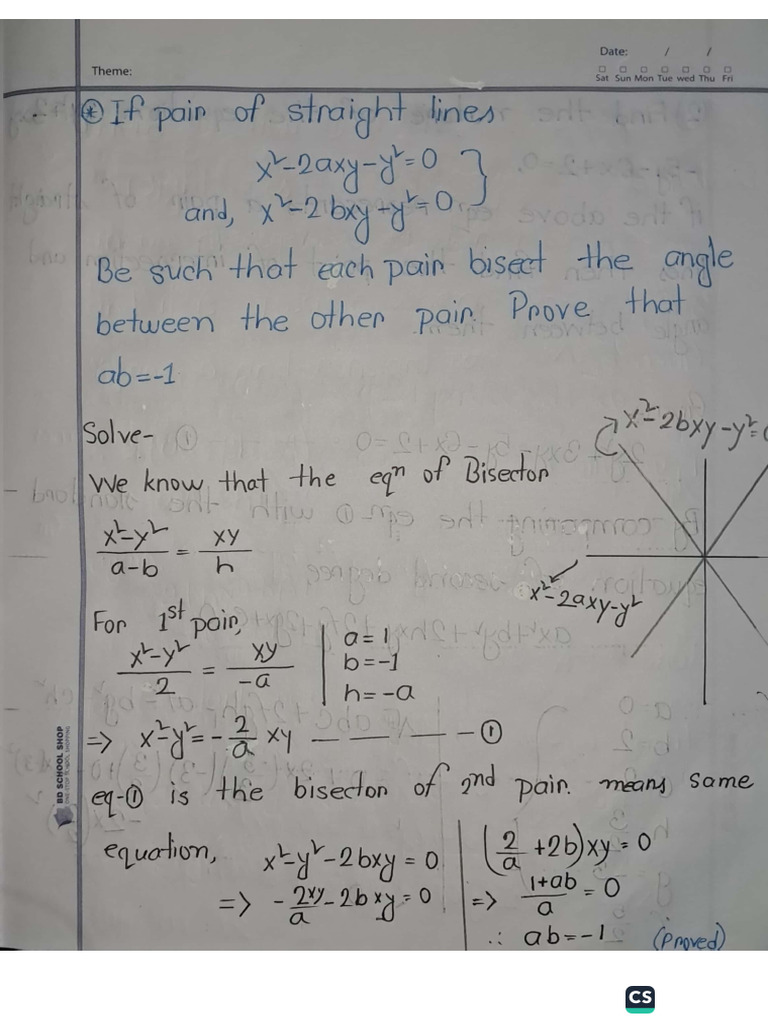 Date: / /
Theme:
Sat Sun Mon Tue wed Thu Fri
⊛ If pair of straight lines
x²-2axy-y²=0 }
and, x²-2bxy-y²=0
Be such that each pair bisect the angle
between the other pair. Prove that
ab=-1
Solve-
x²-2bxy-y²=0
We know that the eqⁿ of Bisector
(x²-y²)/(a-b) = xy/h
x²-2axy-y²
For 1st pair,
(x²-y²)/2 = xy/-a | a=1
b=-1
h=-a
=> x²-y²= -2/a xy — — — -①
eq-① is the bisector of 2nd pair. means same
equation, x²-y²-2bxy=0 | (2/a +2b)xy=0
=> -2xy/a -2bxy=0 | => (1+ab)/a =0
∴ ab=-1 (proved)
BD SCHOOL SHOP
CS